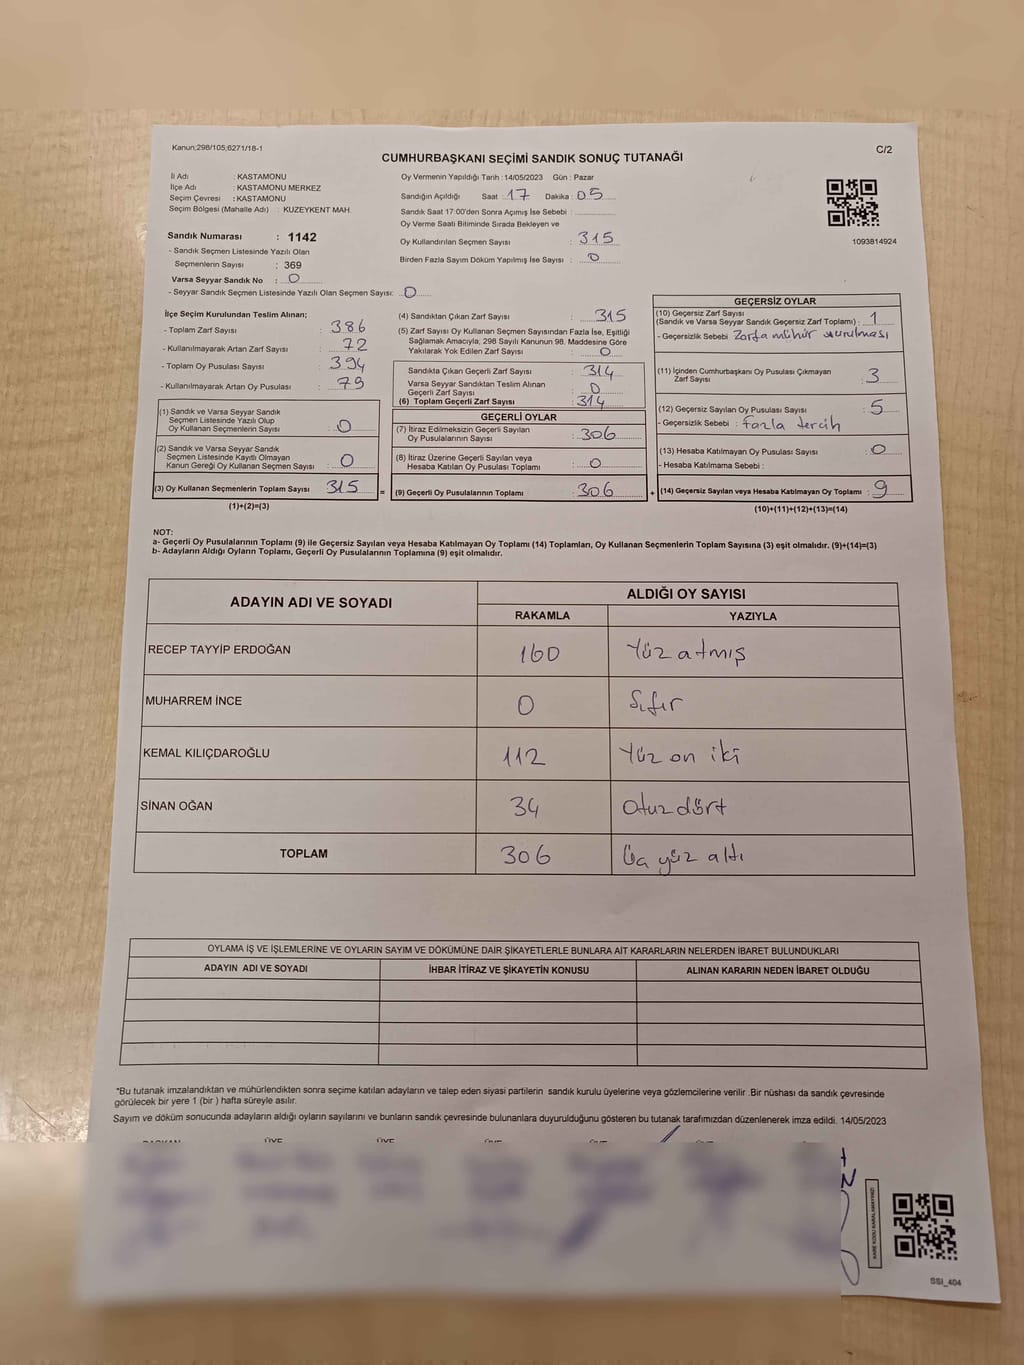 Kanun;298/105;6271/18-1
C/2
CUMHURBAŞKANI SEÇİMİ SANDIK SONUÇ TUTANAĞI
İli Adı : KASTAMONU
İlçe Adı : KASTAMONU MERKEZ
Seçim Çevresi : KASTAMONU
Seçim Bölgesi (Mahalle Adı) : KUZEYKENT MAH.
Sandık Numarası : 1142
- Sandık Seçmen Listesinde Yazılı Olan
Seçmenlerin Sayısı : 369
Varsa Seyyar Sandık No : 0
- Seyyar Sandık Seçmen Listesinde Yazılı Olan Seçmen Sayısı: 0
Oy Vermenin Yapıldığı Tarih : 14/05/2023 Gün : Pazar
Sandığın Açıldığı Saat 17 Dakika : 05
Sandık Saat 17:00'den Sonra Açımış İse Sebebi :
Oy Verme Saati Bitiminde Sırada Bekleyen ve
Oy Kullandırılan Seçmen Sayısı : 315
Birden Fazla Sayım Döküm Yapılmış İse Sayısı : 0
1093814924
İlçe Seçim Kurulundan Teslim Alınan;
- Toplam Zarf Sayısı : 386
- Kullanılmayarak Artan Zarf Sayısı : 72
- Toplam Oy Pusulası Sayısı : 394
- Kullanılmayarak Artan Oy Pusulası : 79
(1) Sandık ve Varsa Seyyar Sandık
Seçmen Listesinde Yazılı Olup
Oy Kullanan Seçmenlerin Sayısı : 0
(2) Sandık ve Varsa Seyyar Sandık
Seçmen Listesinde Kayıtlı Olmayan
Kanun Gereği Oy Kullanan Seçmen Sayısı : 0
(3) Oy Kullanan Seçmenlerin Toplam Sayısı 315 =
(1)+(2)=(3)
(4) Sandıktan Çıkan Zarf Sayısı : 315
(5) Zarf Sayısı Oy Kullanan Seçmen Sayısından Fazla İse, Eşitliği
Sağlamak Amacıyla, 298 Sayılı Kanunun 98. Maddesine Göre
Yakılarak Yok Edilen Zarf Sayısı : 0
Sandıkta Çıkan Geçerli Zarf Sayısı : 314
Varsa Seyyar Sandıktan Teslim Alınan
Geçerli Zarf Sayısı : 0
(6) Toplam Geçerli Zarf Sayısı : 314
GEÇERLİ OYLAR
(7) İtiraz Edilmeksizin Geçerli Sayılan
Oy Pusulalarının Sayısı : 306
(8) İtiraz Üzerine Geçerli Sayılan veya
Hesaba Katılan Oy Pusulası Toplamı : 0
(9) Geçerli Oy Pusulalarının Toplamı : 306 +
GEÇERSİZ OYLAR
(10) Geçersiz Zarf Sayısı
(Sandık ve Varsa Seyyar Sandık Geçersiz Zarf Toplamı) : 1
- Geçersizlik Sebebi Zarfa mühür vurulması
(11) İçinden Cumhurbaşkanı Oy Pusulası Çıkmayan
Zarf Sayısı : 3
(12) Geçersiz Sayılan Oy Pusulası Sayısı : 5
- Geçersizlik Sebebi : fazla tercih
(13) Hesaba Katılmayan Oy Pusulası Sayısı : 0
- Hesaba Katılmama Sebebi :
(14) Geçersiz Sayılan veya Hesaba Katılmayan Oy Toplamı : 9
(10)+(11)+(12)+(13)=(14)
NOT:
a- Geçerli Oy Pusulalarının Toplamı (9) ile Geçersiz Sayılan veya Hesaba Katılmayan Oy Toplamı (14) Toplamları, Oy Kullanan Seçmenlerin Toplam Sayısına (3) eşit olmalıdır. (9)+(14)=(3)
b- Adayların Aldığı Oyların Toplamı, Geçerli Oy Pusulalarının Toplamına (9) eşit olmalıdır.
ADAYIN ADI VE SOYADI
ALDIĞI OY SAYISI
RAKAMLA YAZIYLA
RECEP TAYYİP ERDOĞAN 160 Yüz atmış
MUHARREM İNCE 0 Sıfır
KEMAL KILIÇDAROĞLU 112 Yüz on iki
SİNAN OĞAN 34 Otuz dört
TOPLAM 306 Üç yüz altı
OYLAMA İŞ VE İŞLEMLERİNE VE OYLARIN SAYIM VE DÖKÜMÜNE DAİR ŞİKAYETLERLE BUNLARA AİT KARARLARIN NELERDEN İBARET BULUNDUKLARI
ADAYIN ADI VE SOYADI İHBAR İTİRAZ VE ŞİKAYETİN KONUSU ALINAN KARARIN NEDEN İBARET OLDUĞU
*Bu tutanak imzalandıktan ve mühürlendikten sonra seçime katılan adayların ve talep eden siyasi partilerin sandık kurulu üyelerine veya gözlemcilerine verilir .Bir nüshası da sandık çevresinde
görülecek bir yere 1 (bir ) hafta süreyle asılır.
Sayım ve döküm sonucunda adayların aldığı oyların sayılarını ve bunların sandık çevresinde bulunanlara duyurulduğunu gösteren bu tutanak tarafımızdan düzenlenerek imza edildi. 14/05/2023
KARE KODU KARALAMAYINIZ!
SSI_404